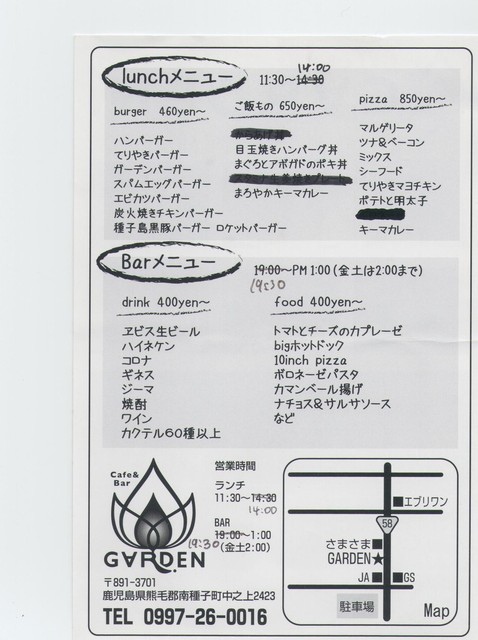 lunchメニュー 11:30～14:30 14:00
burger 460yen～
ハンバーガー
てりやきバーガー
ガーデンバーガー
スパムエッグバーガー
エビカツバーガー
炭火焼きチキンバーガー
種子島黒豚バーガー ロケットバーガー
ご飯もの 650yen～
目玉焼きハンバーグ丼
まぐろとアボガドのポキ丼
まろやかキーマカレー
pizza 850yen～
マルゲリータ
ツナ&ベーコン
ミックス
シーフード
てりやきマヨチキン
ポテトと明太子
キーマカレー
Barメニュー 19:00～PM 1:00 (金土は2:00まで)
19:30
drink 400yen～
ヱビス生ビール
ハイネケン
コロナ
ギネス
ジーマ
焼酎
ワイン
カクテル60種以上
food 400yen～
トマトとチーズのカプレーゼ
bigホットドック
10inch pizza
ボロネーゼパスタ
カマンベール揚げ
ナチョス&サルサソース
など
Cafe&
Bar
GARDEN
営業時間
ランチ
11:30～14:30
14:00
BAR
19:00～1:00
19:30 (金土2:00)
〒891-3701
鹿児島県熊毛郡南種子町中之上2423
TEL 0997-26-0016
エブリワン
58
さまさま
GARDEN★
JA GS
駐車場
Map